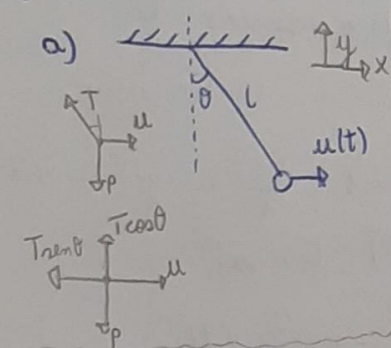 a)
y
x
θ
l
u(t)
T
u
P
Tcosθ
Tsenθ
u
P